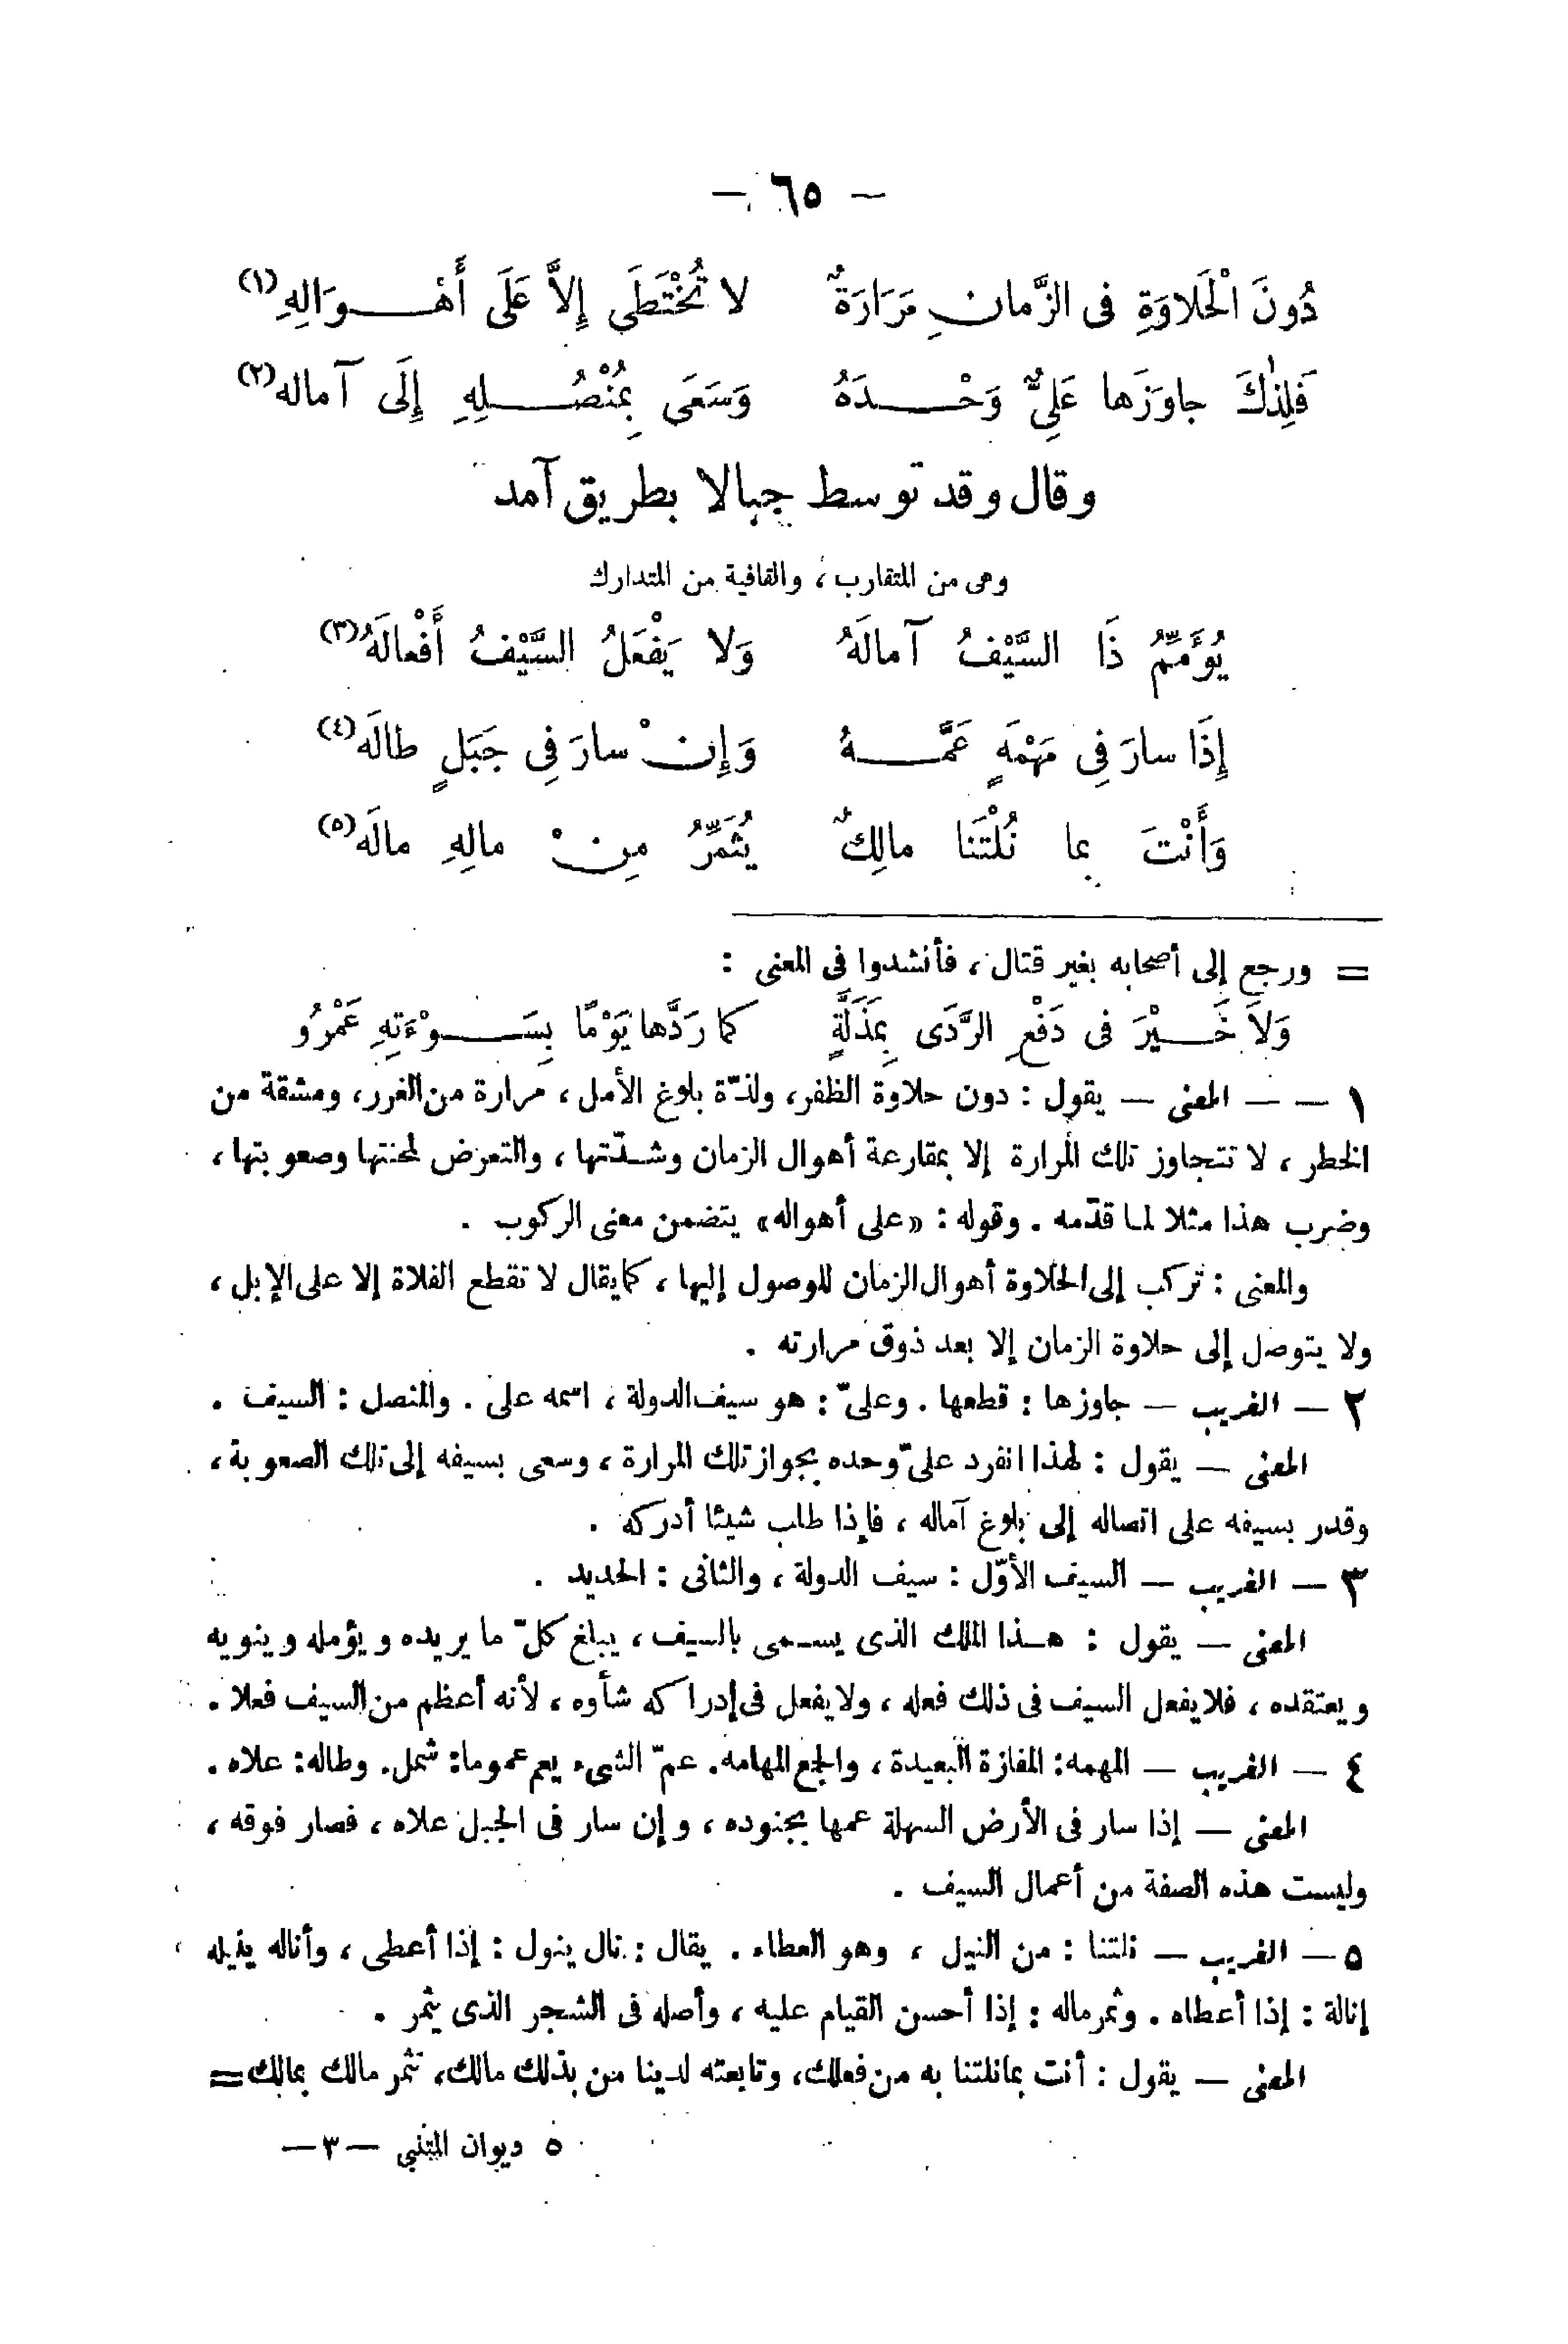 — ٦٥ —
دُونَ الْحَلاوَةِ فى الزَّمانِ مَرَارَةٌ لا تُخْتَطَى إِلاَّ عَلَى أَهْـــوَالِهِ(١)
فَلِذٰكَ جاوَزَها عَلِىٌّ وَحْـــدَهُ وَسَعَى بِمُنْصُـــلِهِ إِلَى آماله(٢)
وقال وقد توسط جبالا بطريق آمد
وهى من المتقارب، والقافية من المتدارك
يُؤَمِّمُ ذَا السَّيْفُ آمالَهُ وَلا يَفْعَلُ السَّيْفُ أَفْعالَهُ(٣)
إِذَا سارَ فِى مَهْمَهٍ عَمَّـــهُ وَإِنْ سارَ فِى جَبَلٍ طالَه(٤)
وَأَنْتَ بما نُلْتَنا مالِكٌ يُثَمِّرُ مِنْ مالِهِ مالَه(٥)
= ورجع إلى أصحابه بغير قتال، فأنشدوا فى المعنى :
وَلاَ خَـــيْرَ فى دَفْعِ الرَّدَى بِمَذَلَّةٍ كما رَدَّها يَوْمًا بِسَـــوْءَتِهِ عَمْرُو
١ — — المعنى — يقول : دون حلاوة الظفر، ولذّة بلوغ الأمل، مرارة من الغرر، ومشقة من
الخطر، لا تتجاوز تلك المرارة إلا بمقارعة أهوال الزمان وشـدّتها، والتعرض لمحنتها وصعوبتها،
وضرب هذا مثلا لما قدّمه . وقوله : «على أهواله» يتضمن معنى الركوب .
والمعنى : تركب إلى الحلاوة أهوال الزمان للوصول إليها، كما يقال لا تقطع الفلاة إلا على الإبل،
ولا يتوصل إلى حلاوة الزمان إلا بعد ذوق مرارته .
٢ — الغريب — جاوزها : قطعها . وعلىّ : هو سيف الدولة، اسمه على . والمنصل : السيف .
المعنى — يقول : لهذا انفرد علىّ وحده بجواز تلك المرارة، وسعى بسيفه إلى تلك الصعوبة،
وقدر بسيفه على اتصاله إلى بلوغ آماله، فإذا طلب شيئا أدركه .
٣ — الغريب — السيف الأوّل : سيف الدولة، والثانى : الحديد .
المعنى — يقول : هـذا الملك الذى يسـمى بالسيف، يبلغ كلّ ما يريده ويؤمله وينويه
ويعتقده، فلا يفعل السيف فى ذلك فعله، ولا يفعل فى إدراكه شأوه، لأنه أعظم من السيف فعلا .
٤ — الغريب — المهمه: المفازة البعيدة، والجمع المهامه. عمّ الشىء يعم عموما: شمل. وطاله: علاه.
المعنى — إذا سار فى الأرض السهلة عمها بجنوده، وإن سار فى الجبل علاه، فصار فوقه،
وليست هذه الصفة من أعمال السيف .
٥ — الغريب — نلتنا : من النيل، وهو العطاء . يقال : نال ينول : إذا أعطى، وأناله ينيله
إنالة : إذا أعطاه . وثمر ماله : إذا أحسن القيام عليه، وأصله فى الشجر الذى يثمر .
المعنى — يقول : أنت بما نلتنا به من فعلك، وتابعته لدينا من بذلك مالك، تثمر مالك بمالك=
٥ ديوان المتنبي — ٣ —